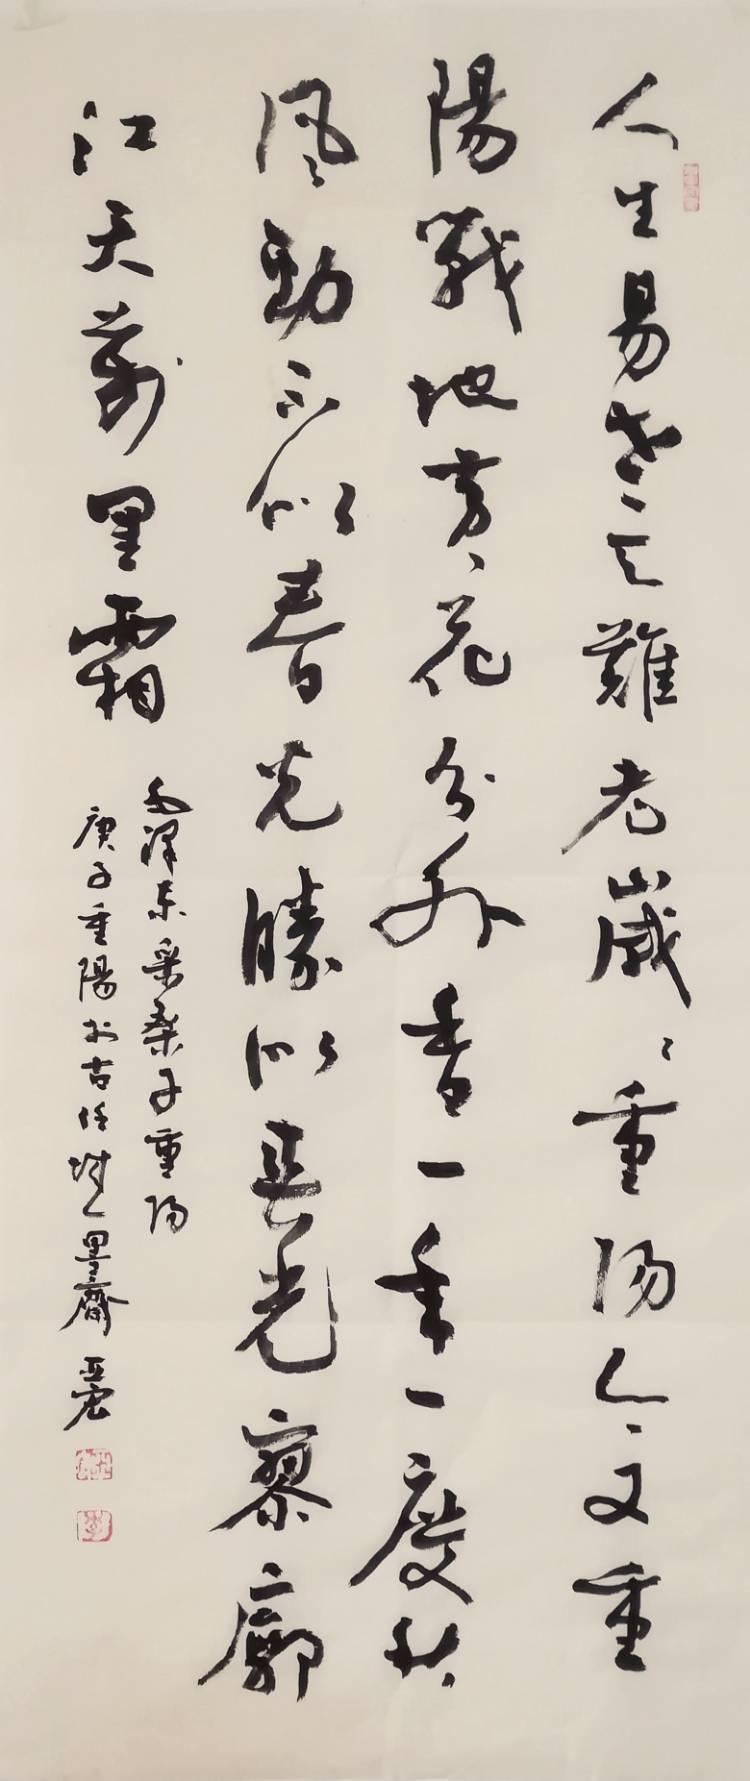 人生易老天難老歲々重陽今又重
陽戰地黄花分外香一年一度秋
風勁不似春光勝似春光寥廓
江天萬里霜
毛澤東采桑子重陽
庚子重陽於古任城墨齋亞宏
李